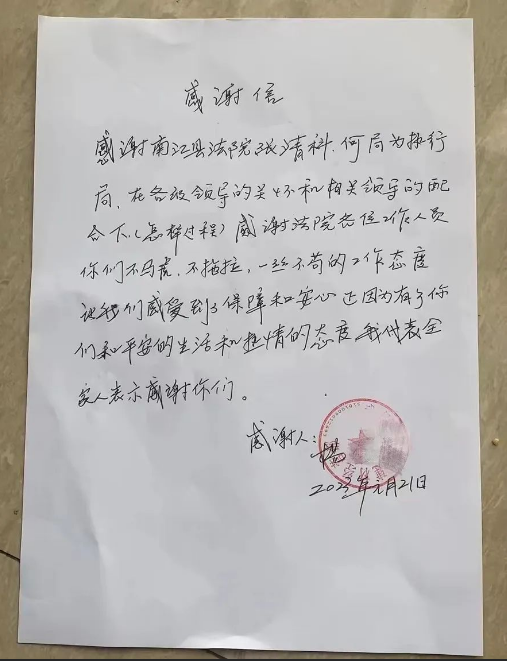 感谢信
感谢南江县法院张清科.何局为执行
局.在各级领导的关怀和相关领导的配
合下.(怎样过程)感谢法院各位工作人员
你们不马虎.不拖拉.一丝不苟的工作态度
让我们感受到了保障和安心 正因为有了你
们和平安的生活和热情的态度 我代表全
家人表示感谢你们。
感谢人：杨
2023年元月21日